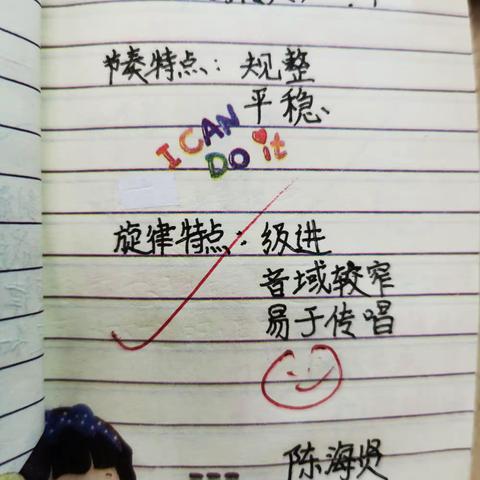 节奏特点：规整
平稳、
I CAN
DO it
旋律特点：级进
音域较窄
易于传唱
陈海贤